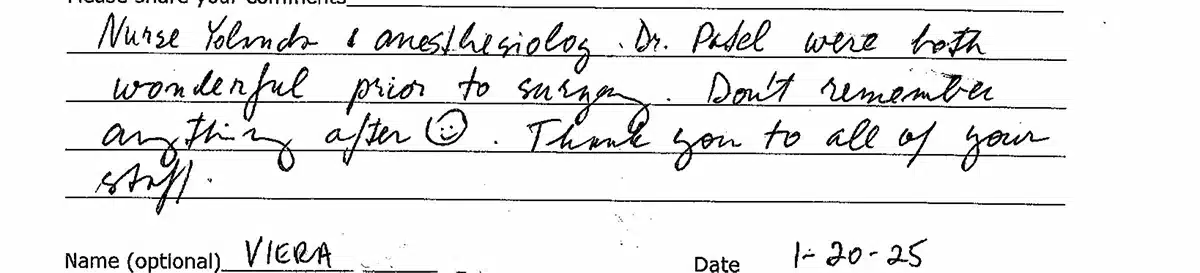 Please share your comments
Nurse Yolanda & anesthesiolog. Dr. Patel were both
wonderful prior to surgery. Don't remember
anything after ☺. Thank you to all of your
staff.
Name (optional) VIERA Date 1-20-25